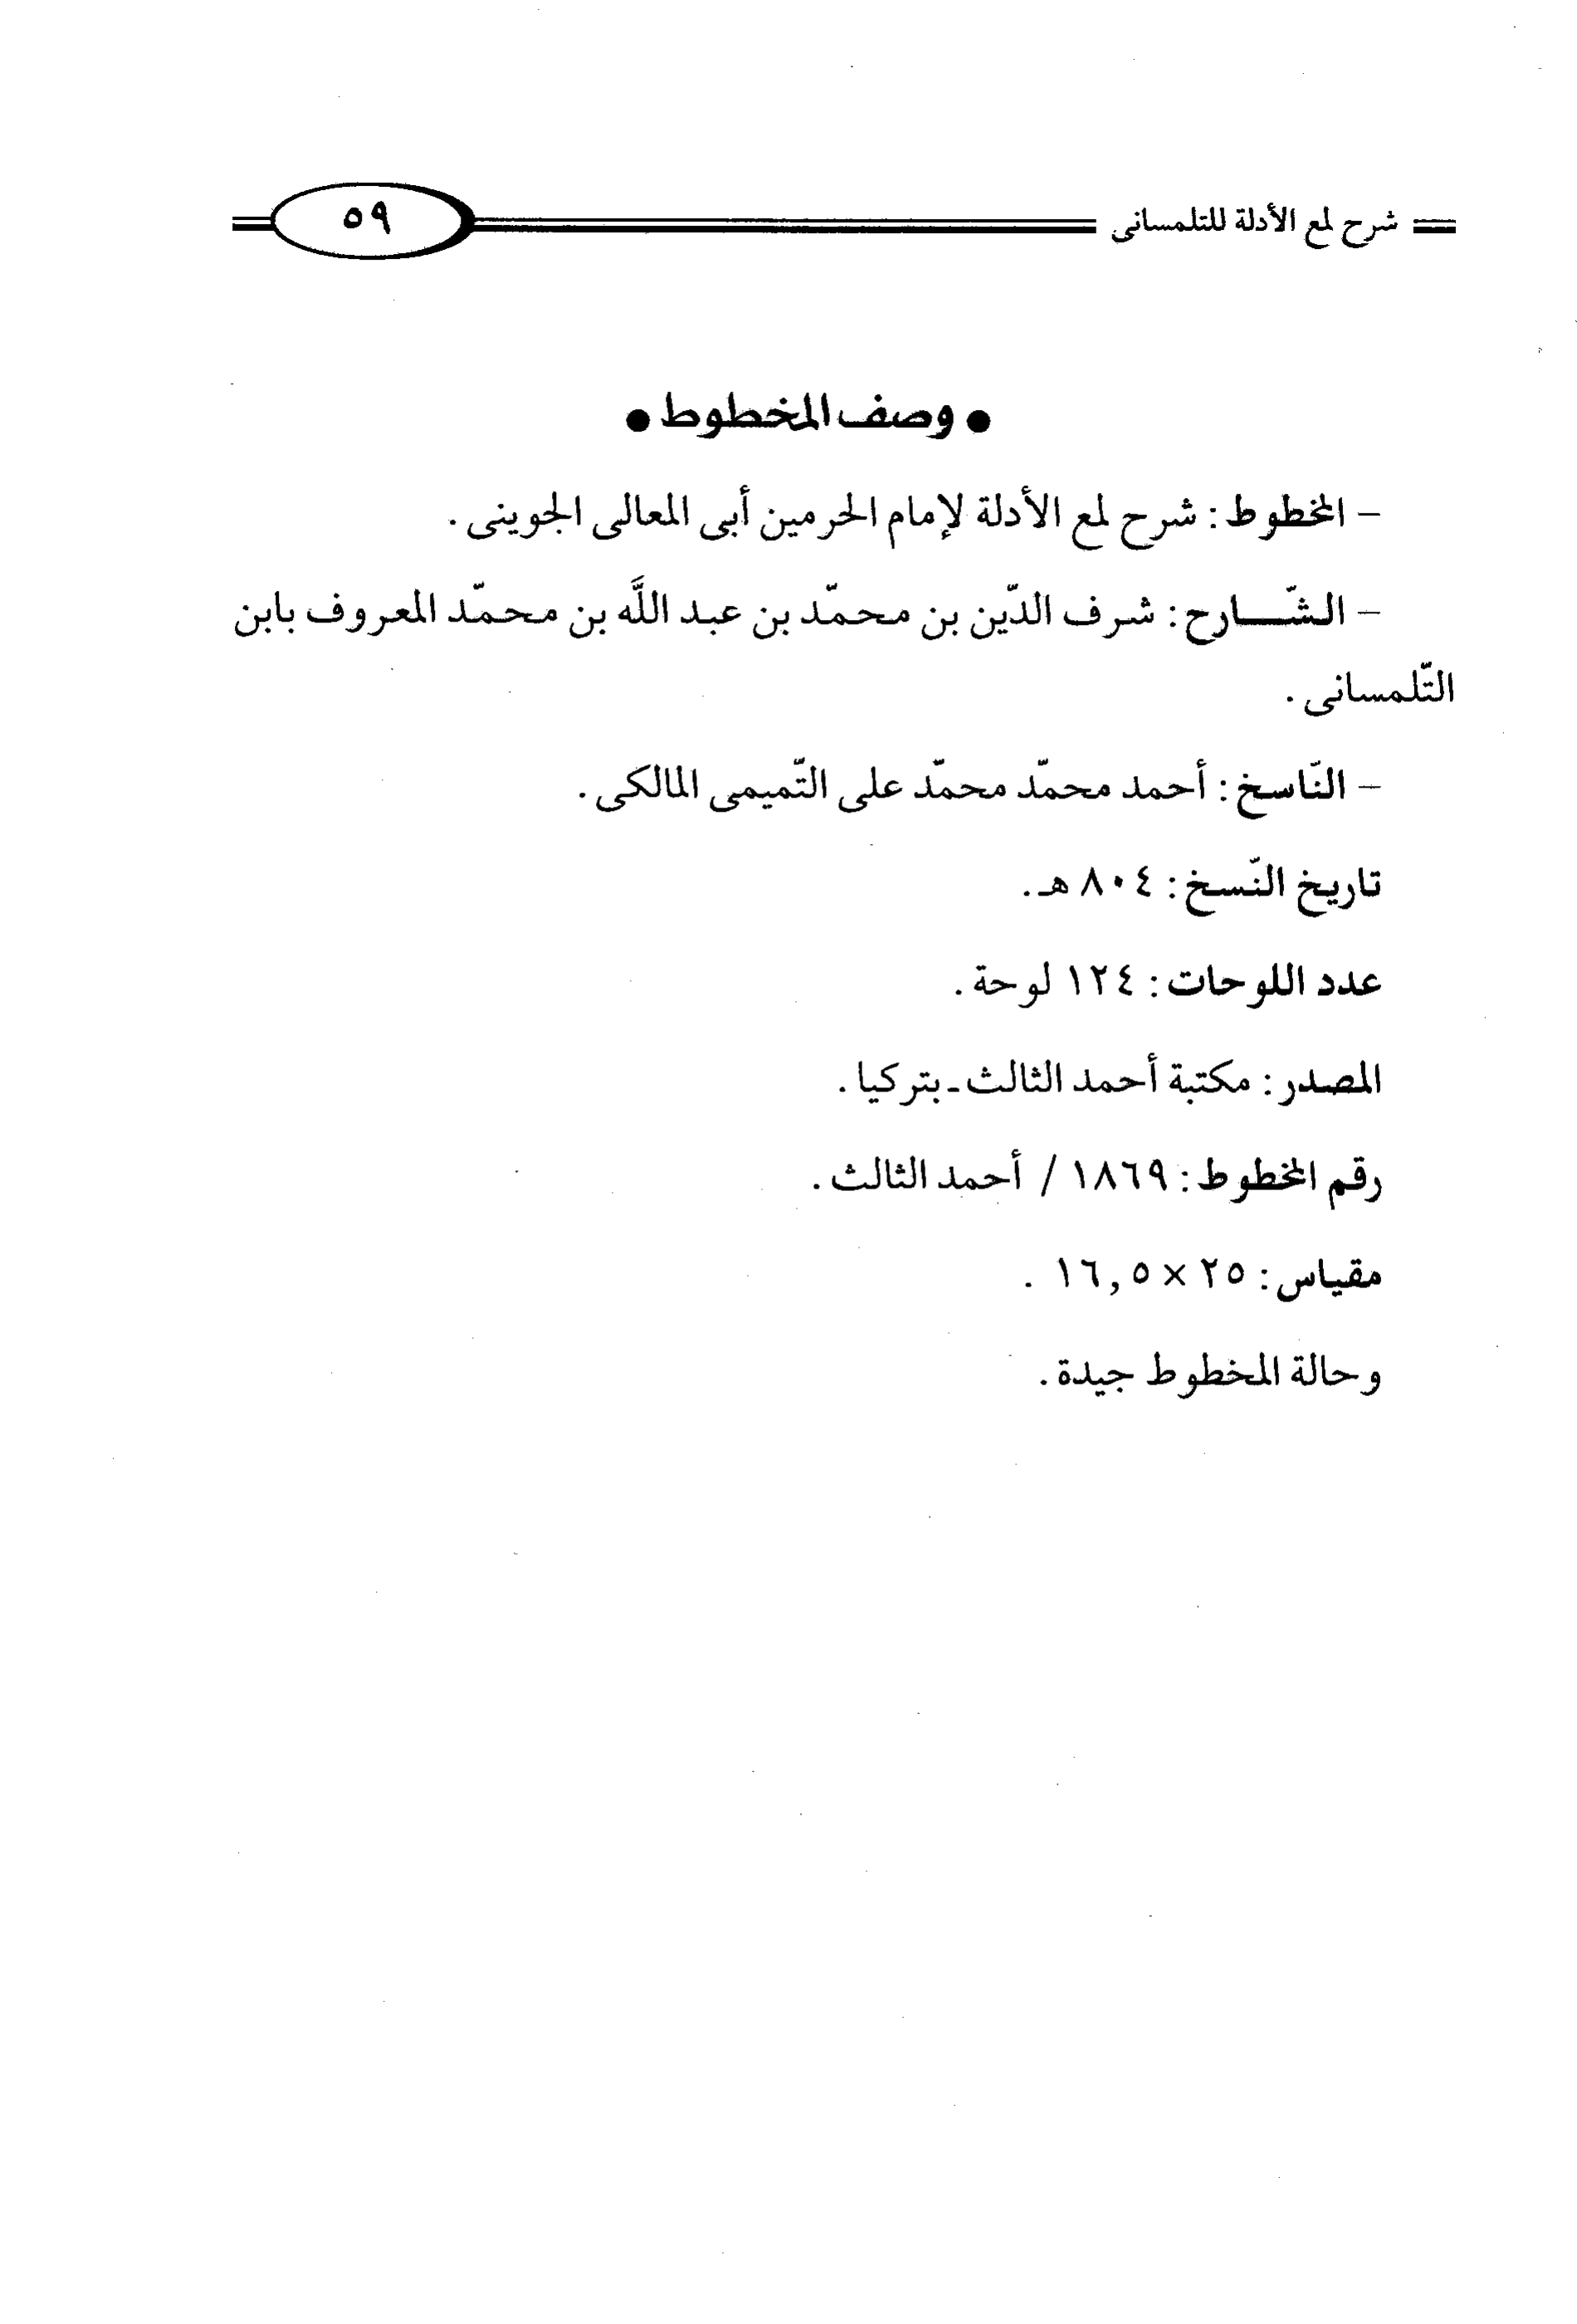 شرح لمع الأدلة للتلمسانى ٥٩
● وصف المخطوط ●
– المخطوط : شرح لمع الأدلة لإمام الحرمين أبى المعالى الجوينى .
– الشّـــارح : شرف الدّين بن محمّد بن عبد اللَّه بن محمّد المعروف بابن
التّلمسانى .
– النّاسخ : أحمد محمّد محمّد على التّميمى المالكى .
تاريخ النّسخ : ٨٠٤ هـ .
عدد اللوحات : ١٢٤ لوحة .
المصدر : مكتبة أحمد الثالث ـ بتركيا .
رقم المخطوط : ١٨٦٩ / أحمد الثالث .
مقياس : ٢٥ × ١٦,٥ .
وحالة المخطوط جيدة .